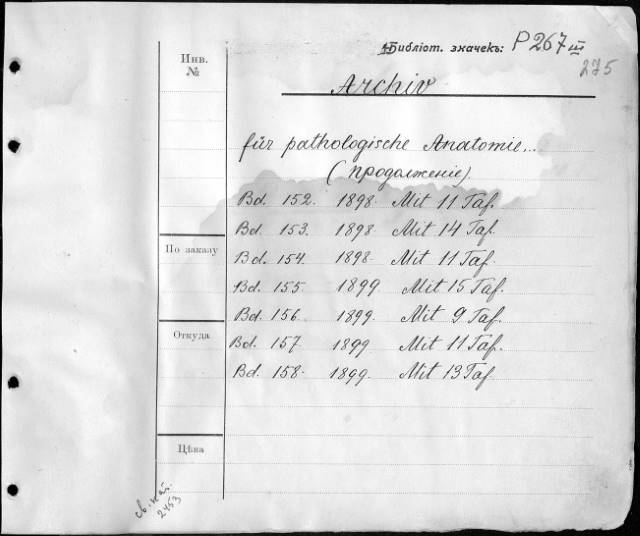 Библіот. значекъ: P 267 III
275
Инв.
№
Archiv
für pathologische Anatomie...
(продолженіе)
Bd. 152. 1898. Mit 11 Taf.
Bd. 153. 1898. Mit 14 Taf.
Bd. 154. 1898. Mit 11 Taf.
Bd. 155 1899. Mit 15 Taf.
Bd. 156. 1899. Mit 9 Taf.
Bd. 157 1899 Mit 11 Taf.
Bd. 158. 1899. Mit 13 Taf.
По заказу
Откуда
Цѣна
св. кат.
2453